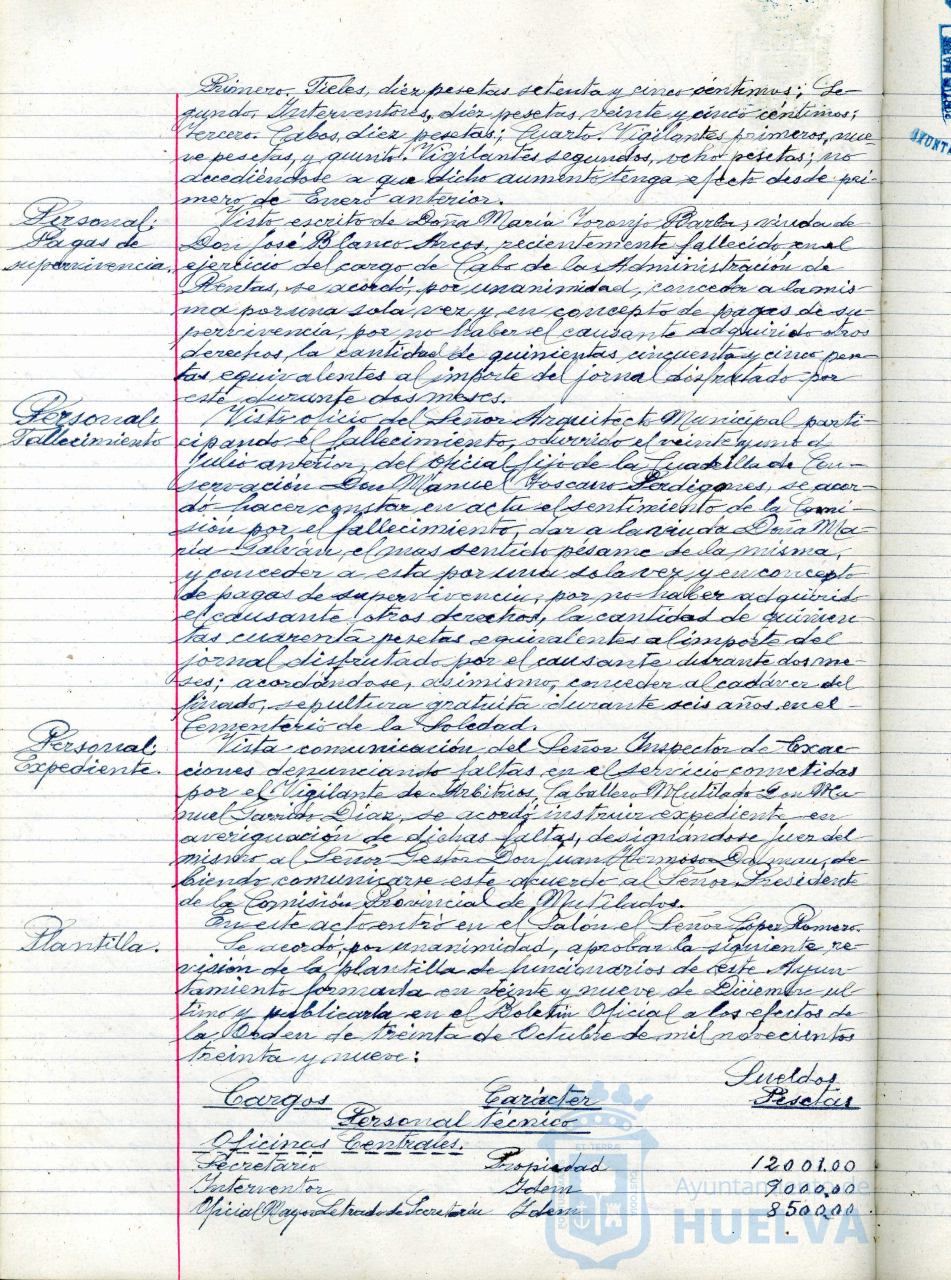 Primero. Fieles, diez pesetas setenta y cinco céntimos; Se-
gundo. Interventores, diez pesetas veinte y cinco céntimos;
Tercero. Cabos, diez pesetas; Cuarto. Vigilantes primeros, nue-
ve pesetas, y quinto. Vigilantes segundos, ocho pesetas; no
accediéndose a que dicho aumento tenga efecto desde pri-
mero de Enero anterior.
Personal.
Pagas de
supervivencia.
Visto escrito de Doña María Toronjo Barba, viuda de
Don José Blanco Arcos, recientemente fallecido en el
ejercicio del cargo de Cabo de la Administración de
Rentas, se acordó, por unanimidad, conceder a la mis-
ma por una sola vez y en concepto de pagas de su-
pervivencia, por no haber el causante adquirido otros
derechos, la cantidad de quinientas cincuenta y cinco pese-
tas equivalentes al importe del jornal disfrutado por
este durante dos meses.
Personal.
Fallecimiento
Visto oficio del Señor Arquitecto Municipal parti-
cipando el fallecimiento, ocurrido el veinte y uno de
Julio anterior, del oficial fijo de la Cuadrilla de Con-
servación Don Manuel Toscano Perdigones, se acor-
dó hacer constar en acta el sentimiento de la Comi-
sión por el fallecimiento, dar a la viuda Doña Ma-
ría Galván, el mas sentido pésame de la misma,
y conceder a esta por una sola vez y en concepto
de pagas de supervivencia, por no haber adquirido
el causante otros derechos, la cantidad de quinien-
tas cuarenta pesetas equivalentes al importe del
jornal disfrutado por el causante durante dos me-
ses; acordándose, asimismo, conceder al cadáver del
finado, sepultura gratuita durante seis años en el
Cementerio de la Soledad.
Personal.
Expediente.
Vista comunicación del Señor Inspector de Exac-
ciones denunciando faltas en el servicio cometidas
por el Vigilante de Arbitrios, Caballero Mutilado Don Ma-
nuel Garrido Díaz, se acordó instruir expediente en
averiguación de dichas faltas, designándose Juez del
mismo al Señor Gestor Don Juan Hermoso Dalmau, de-
biendo comunicarse este acuerdo al Señor Presidente
de la Comisión Provincial de Mutilados.
En este acto entró en el Salón el Señor López Romero.
Plantilla.
Se acordó, por unanimidad, aprobar la siguiente re-
visión de la plantilla de funcionarios de este Ayun-
tamiento formada en veinte y nueve de Diciembre úl-
timo y publicarla en el Boletín Oficial a los efectos de
la Orden de treinta de Octubre de mil novecientos
treinta y nueve:
Cargos Carácter Sueldos Pesetas
Personal técnico
Oficinas Centrales.
Secretario Propiedad 12001,00
Interventor Idem 9000,00
Oficial Mayor Letrado de Secretaría Idem 8500,00
Ayuntamiento de
HUELVA